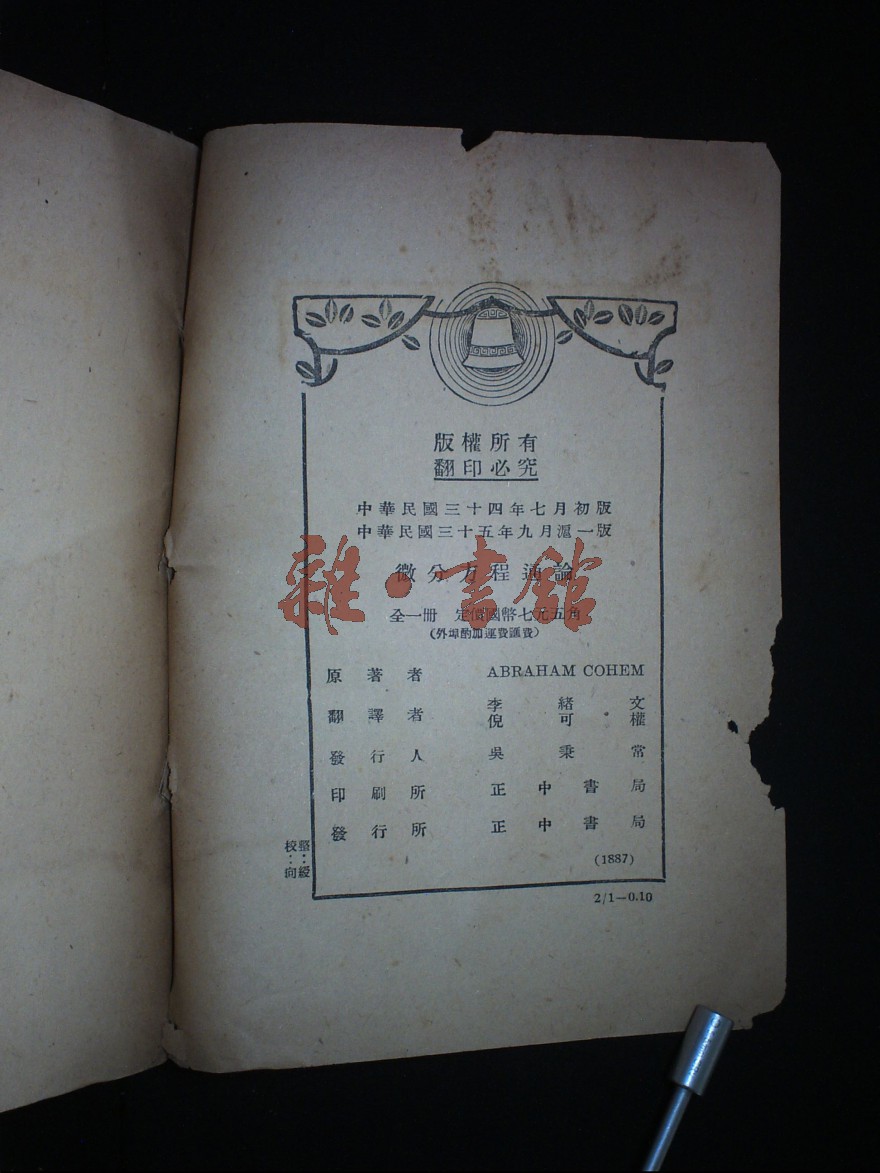 版權所有
翻印必究
中華民國三十四年七月初版
中華民國三十五年九月滬一版
微分方程通論
全一冊 定價國幣七元五角
(外埠酌加運費匯費)
原著者 ABRAHAM COHEM
翻譯者 李緒文
倪可權
發行人 吳秉常
印刷所 正中書局
發行所 正中書局
(1887)
2/1—0.10
雜·書館